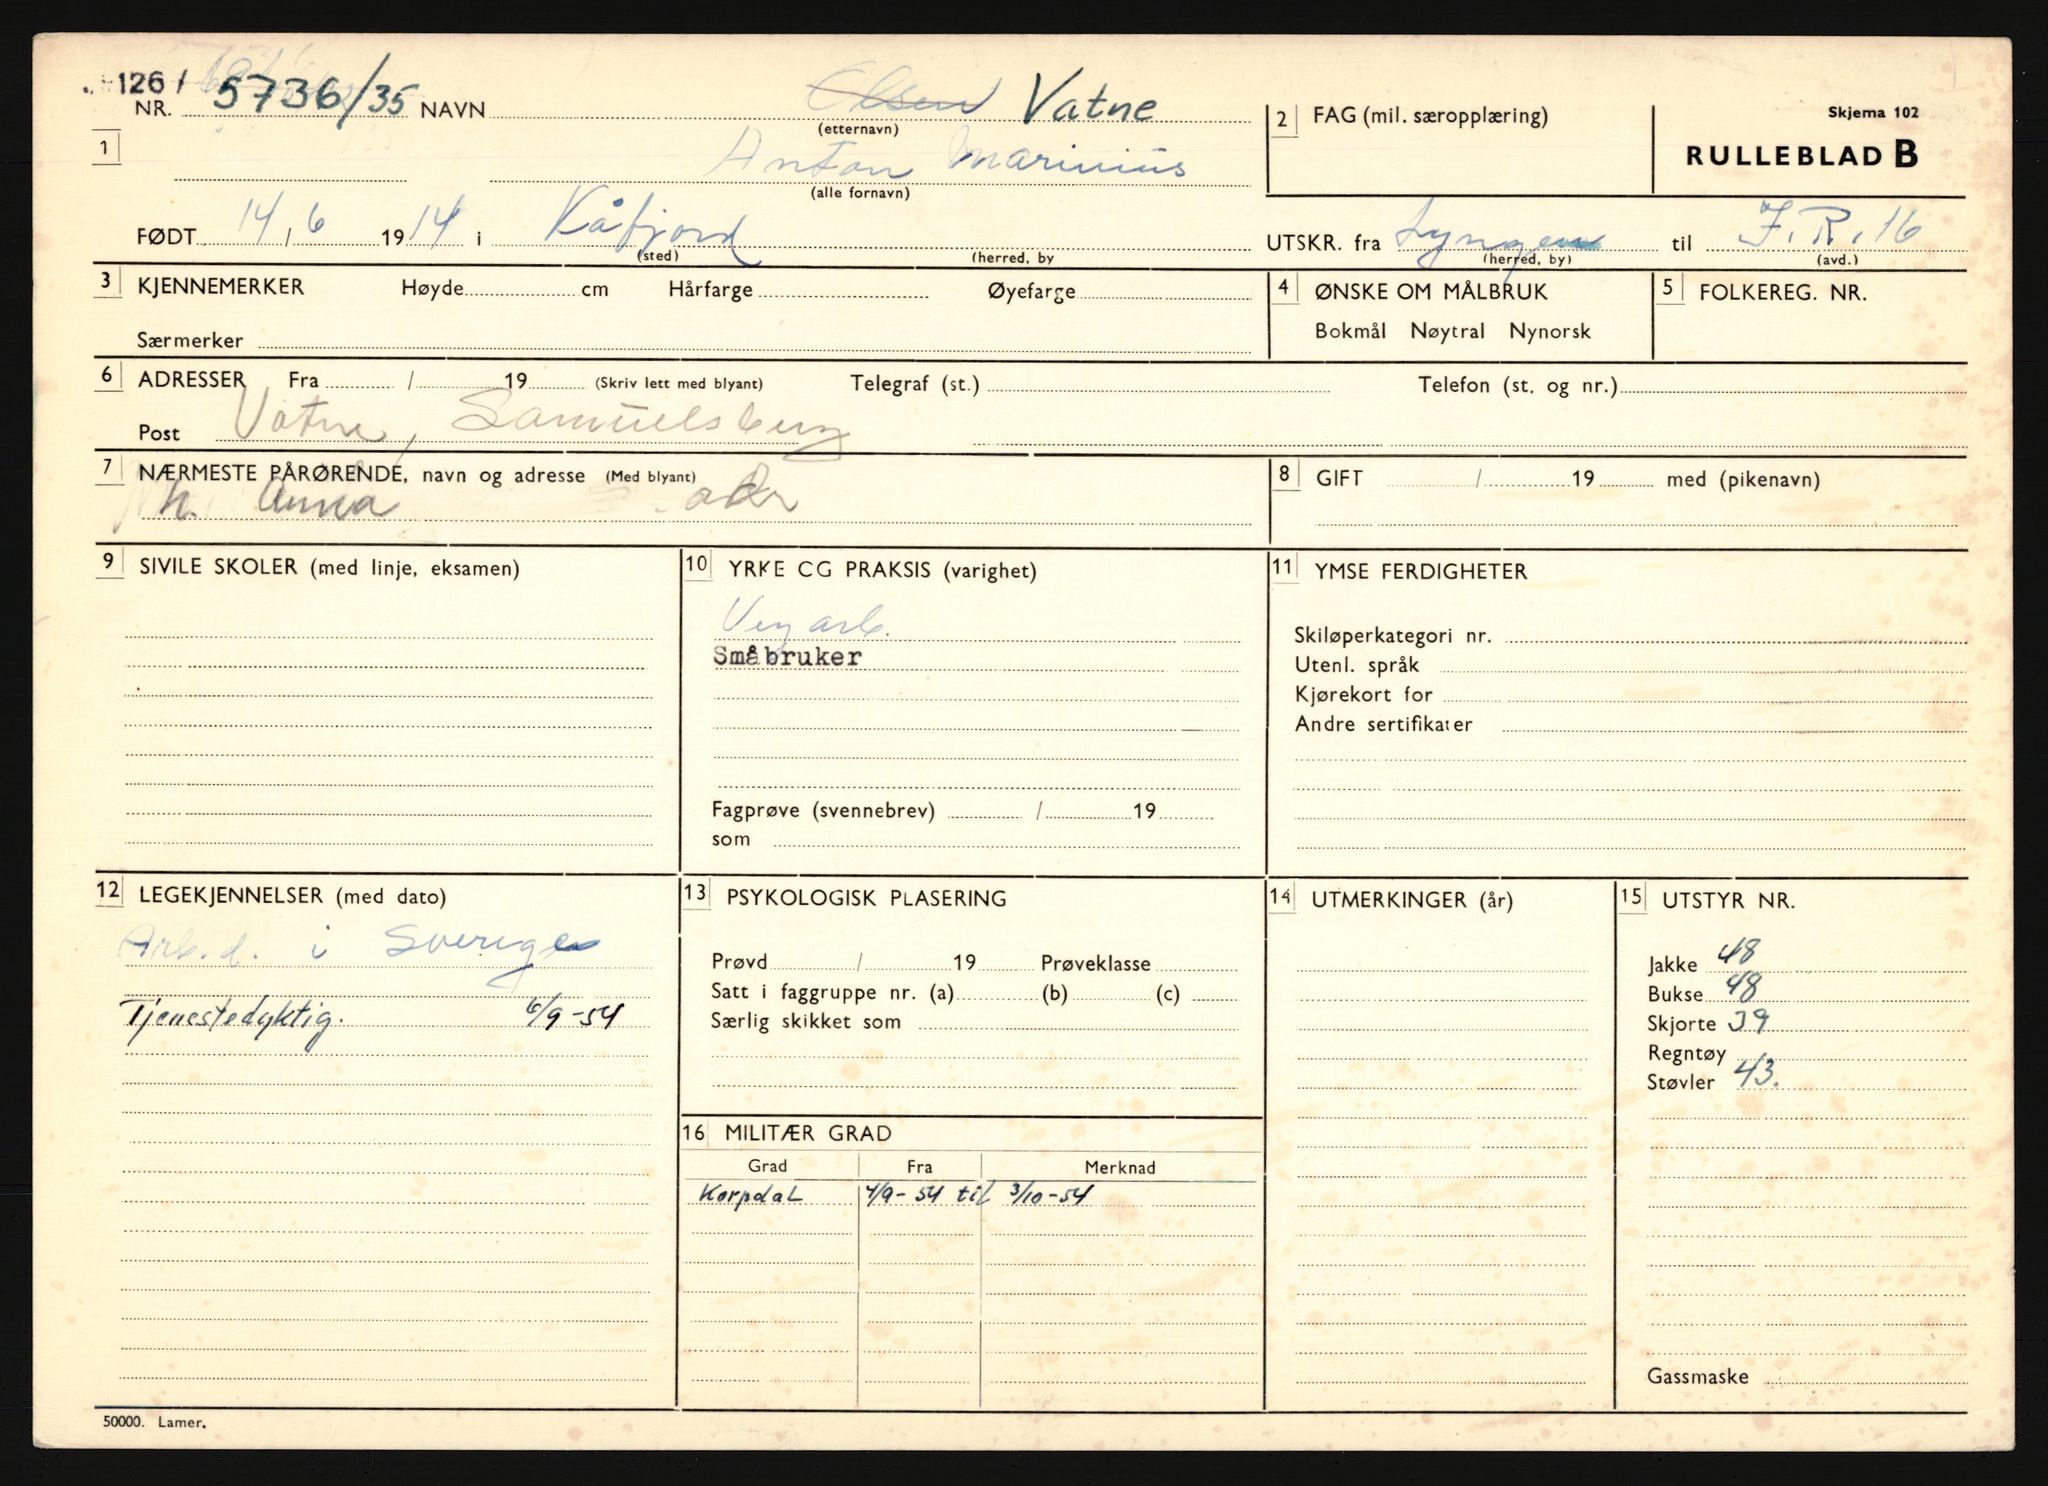 1261
NR. 5736/35 NAVN Olsen Vatne
(etternavn)
2 FAG (mil. særopplæring)
Skjema 102
RULLEBLAD B
1
Anton Marinius
(alle fornavn)
FØDT 14/6 1914 i Kåfjord
(sted) (herred, by
UTSKR. fra Lyngen til J.R.16
(herred, by) (avd.)
3 KJENNEMERKER Høyde cm Hårfarge Øyefarge
Særmerker
4 ØNSKE OM MÅLBRUK
Bokmål Nøytral Nynorsk
5 FOLKEREG. NR.
6 ADRESSER Fra / 19 (Skriv lett med blyant) Telegraf (st.) Telefon (st. og nr.)
Post Vatne, Samuelsberg
7 NÆRMESTE PÅRØRENDE, navn og adresse (Med blyant)
h. Anna adr
8 GIFT / 19 med (pikenavn)
9 SIVILE SKOLER (med linje, eksamen)
10 YRKE CG PRAKSIS (varighet)
Veg arb.
Småbruker
Fagprøve (svennebrev) / 19
som
11 YMSE FERDIGHETER
Skiløperkategori nr.
Utenl. språk
Kjørekort for
Andre sertifikater
12 LEGEKJENNELSER (med dato)
Arb.d. i Sverige
Tjenestedyktig. 6/9-54
13 PSYKOLOGISK PLASERING
Prøvd / 19 Prøveklasse
Satt i faggruppe nr. (a) (b) (c)
Særlig skikket som
14 UTMERKINGER (år)
15 UTSTYR NR.
Jakke 48
Bukse 48
Skjorte 39
Regntøy
Støvler 43.
Gassmaske
16 MILITÆR GRAD
Grad Fra Merknad
Korpdal 4/9-54 til 3/10-54
50000. Lamer.